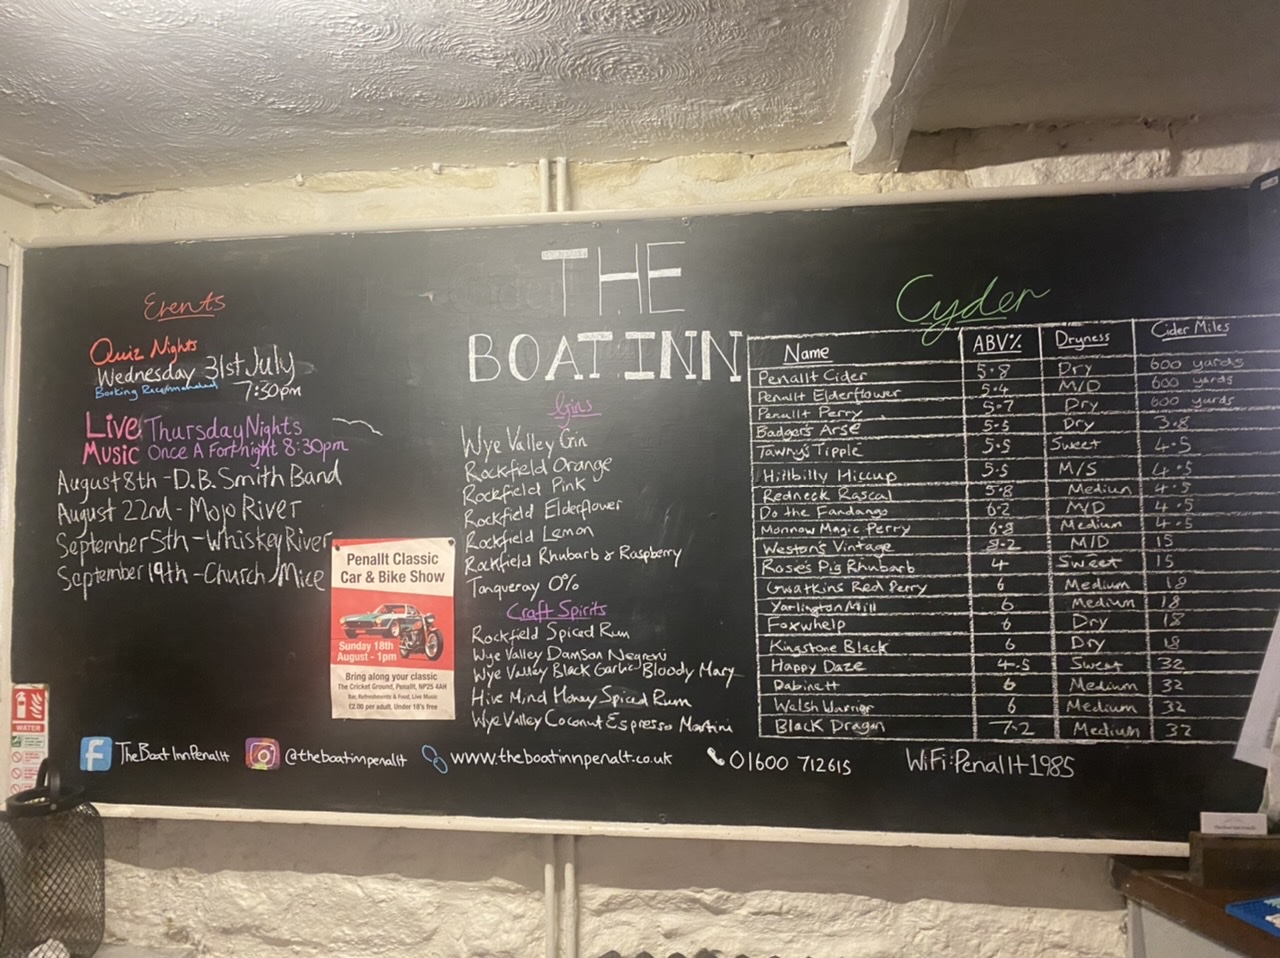 THE
BOAT INN
Events
Quiz Nights
Wednesday 31st July
Booking Recommended 7:30pm
Live Thursday Nights
Music Once A Fortnight 8:30pm
August 8th - D.B. Smith Band
August 22nd - Mojo River
September 5th - Whiskey River
September 19th - Church Mice
Penallt Classic
Car & Bike Show
Sunday 18th
August - 1pm
Bring along your classic
The Cricket Ground, Penallt, NP25 4AH
Bar, Refreshments & Food, Live Music
£2.00 per adult, Under 18's free
Gins
Wye Valley Gin
Rockfield Orange
Rockfield Pink
Rockfield Elderflower
Rockfield Lemon
Rockfield Rhubarb & Raspberry
Tanqueray 0%
Craft Spirits
Rockfield Spiced Rum
Wye Valley Damson Negroni
Wye Valley Black Garlic Bloody Mary
Hive Mind Honey Spiced Rum
Wye Valley Coconut Espresso Martini
Cyder
Name ABV% Dryness Cider Miles
Penallt Cider 5.8 Dry 600 yards
Penallt Elderflower 5.4 M/D 600 yards
Penallt Perry 5.7 Dry 600 yards
Badgers Arse 5.5 Dry 3.8
Tawny's Tipple 5.5 Sweet 4.5
Hillbilly Hiccup 5.5 M/S 4.5
Redneck Rascal 5.8 Medium 4.5
Do the Fandango 6.2 M/D 4.5
Monnow Magic Perry Medium 4.5
Weston's Vintage M/D 15
Rosie's Pig Rhubarb 4 Sweet 15
Gwatkins Red Perry 6 Medium 18
Yarlington Mill 6 Medium 18
Foxwhelp 6 Dry 18
Kingstone Black 6 Dry 18
Happy Daze 4.5 Sweet 32
Dabinett 6 Medium 32
Welsh Warrior 6 Medium 32
Black Dragon 7.2 Medium 32
The Boat Inn Penallt @theboatinnpenallt www.theboatinnpenallt.co.uk 01600 712615 WiFi: Penallt1985
WATER